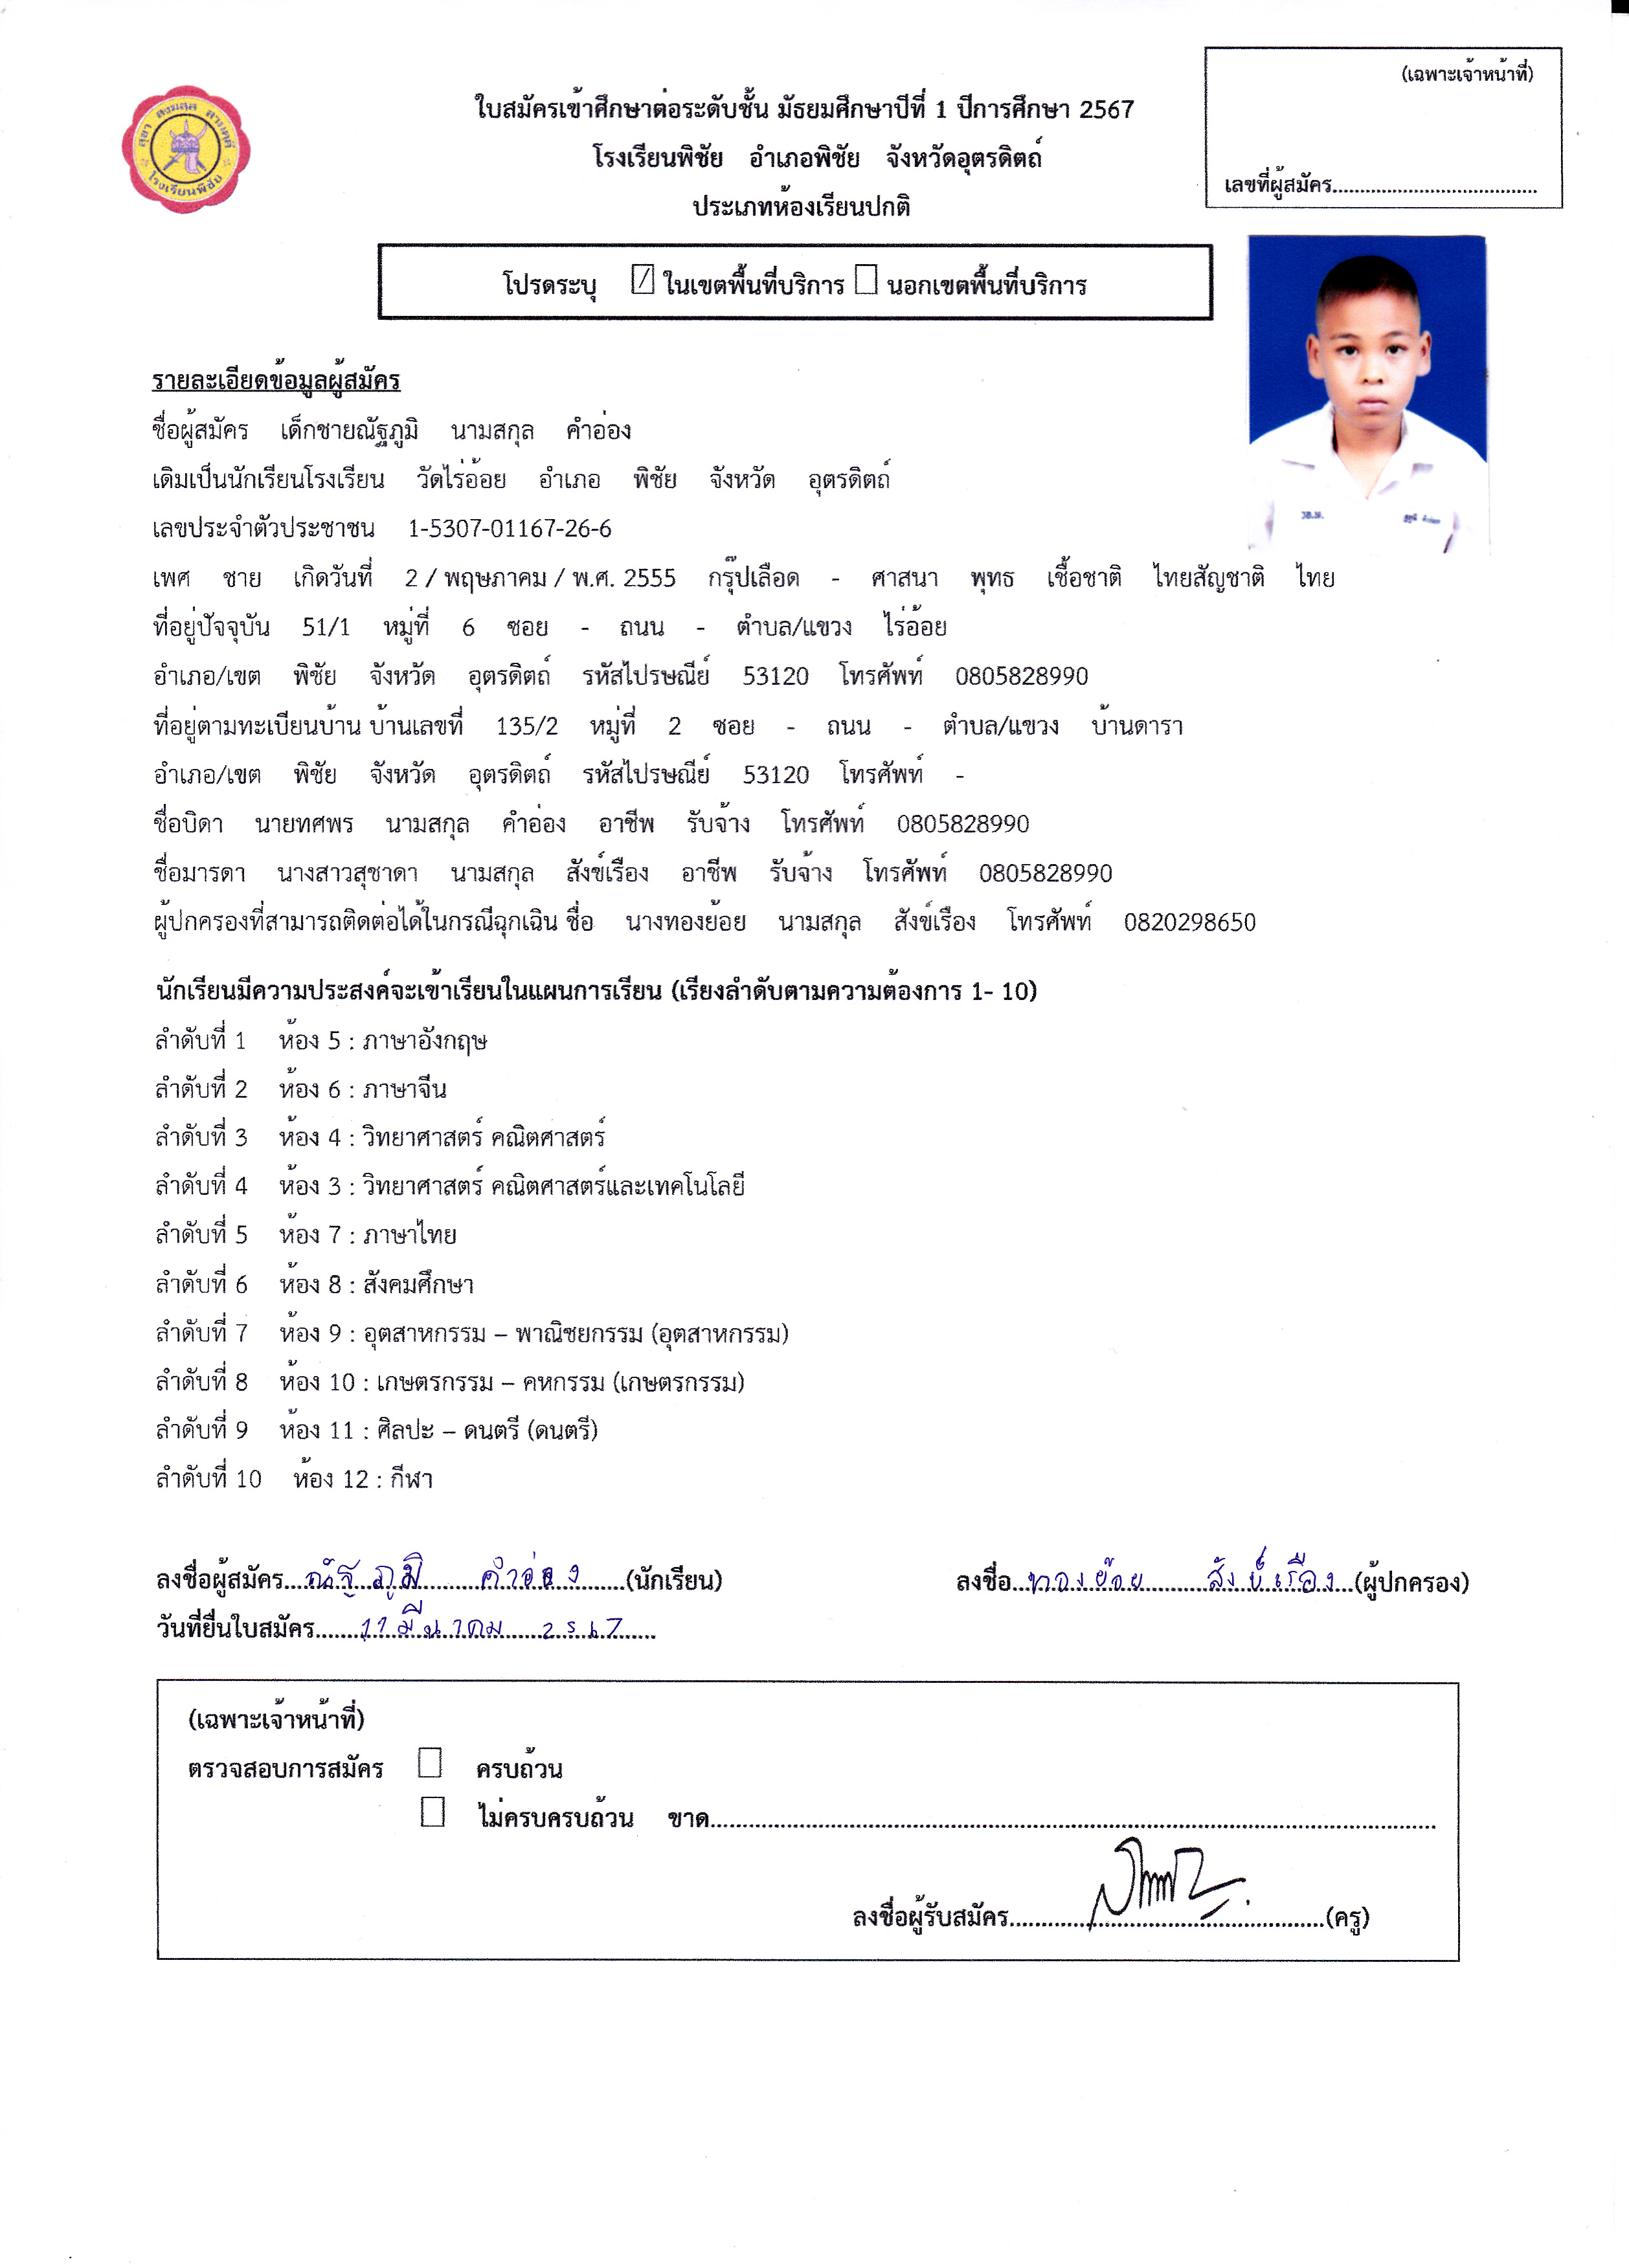 (เฉพาะเจ้าหน้าที่)
เลขที่ผู้สมัคร.....................................
โรงเรียนพิชัย
ใบสมัครเข้าศึกษาต่อระดับชั้น มัธยมศึกษาปีที่ 1 ปีการศึกษา 2567
โรงเรียนพิชัย อำเภอพิชัย จังหวัดอุตรดิตถ์
ประเภทห้องเรียนปกติ
โปรดระบุ ☑ ในเขตพื้นที่บริการ ☐ นอกเขตพื้นที่บริการ
รายละเอียดข้อมูลผู้สมัคร
ชื่อผู้สมัคร เด็กชายณัฐภูมิ นามสกุล คำอ่อง
เดิมเป็นนักเรียนโรงเรียน วัดไร่อ้อย อำเภอ พิชัย จังหวัด อุตรดิตถ์
เลขประจำตัวประชาชน 1-5307-01167-26-6
เพศ ชาย เกิดวันที่ 2 / พฤษภาคม / พ.ศ. 2555 กรุ๊ปเลือด - ศาสนา พุทธ เชื้อชาติ ไทยสัญชาติ ไทย
ที่อยู่ปัจจุบัน 51/1 หมู่ที่ 6 ซอย - ถนน - ตำบล/แขวง ไร่อ้อย
อำเภอ/เขต พิชัย จังหวัด อุตรดิตถ์ รหัสไปรษณีย์ 53120 โทรศัพท์ 0805828990
ที่อยู่ตามทะเบียนบ้าน บ้านเลขที่ 135/2 หมู่ที่ 2 ซอย - ถนน - ตำบล/แขวง บ้านดารา
อำเภอ/เขต พิชัย จังหวัด อุตรดิตถ์ รหัสไปรษณีย์ 53120 โทรศัพท์ -
ชื่อบิดา นายทศพร นามสกุล คำอ่อง อาชีพ รับจ้าง โทรศัพท์ 0805828990
ชื่อมารดา นางสาวสุชาดา นามสกุล สังข์เรือง อาชีพ รับจ้าง โทรศัพท์ 0805828990
ผู้ปกครองที่สามารถติดต่อได้ในกรณีฉุกเฉิน ชื่อ นางทองย้อย นามสกุล สังข์เรือง โทรศัพท์ 0820298650
นักเรียนมีความประสงค์จะเข้าเรียนในแผนการเรียน (เรียงลำดับตามความต้องการ 1- 10)
ลำดับที่ 1 ห้อง 5 : ภาษาอังกฤษ
ลำดับที่ 2 ห้อง 6 : ภาษาจีน
ลำดับที่ 3 ห้อง 4 : วิทยาศาสตร์ คณิตศาสตร์
ลำดับที่ 4 ห้อง 3 : วิทยาศาสตร์ คณิตศาสตร์และเทคโนโลยี
ลำดับที่ 5 ห้อง 7 : ภาษาไทย
ลำดับที่ 6 ห้อง 8 : สังคมศึกษา
ลำดับที่ 7 ห้อง 9 : อุตสาหกรรม – พาณิชยกรรม (อุตสาหกรรม)
ลำดับที่ 8 ห้อง 10 : เกษตรกรรม – คหกรรม (เกษตรกรรม)
ลำดับที่ 9 ห้อง 11 : ศิลปะ – ดนตรี (ดนตรี)
ลำดับที่ 10 ห้อง 12 : กีฬา
ลงชื่อผู้สมัคร ณัฐภูมิ คำอ่อง (นักเรียน) ลงชื่อ ทองย้อย สังข์เรือง (ผู้ปกครอง)
วันที่ยื่นใบสมัคร 11 มีนาคม 2567
(เฉพาะเจ้าหน้าที่)
ตรวจสอบการสมัคร ☐ ครบถ้วน
☐ ไม่ครบครบถ้วน ขาด....................
ลงชื่อผู้รับสมัคร....................(ครู)